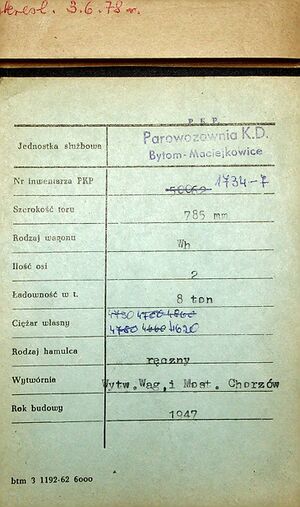 kresl. 3.6.78 r.
P.K.P.
Jednostka służbowa Parowozownia K.D.
Bytom-Maciejkowice
Nr inwentarza PKP 50062 1734-7
Szerokość toru 785 mm
Rodzaj wagonu Wh
Ilość osi 2
Ładowność w t. 8 ton
Ciężar własny 4730 4700 4860
4780 4660 4620
Rodzaj hamulca ręczny
Wytwórnia Wytw.Wag.i Most. Chorzów
Rok budowy 1947
btm 3 1192-62 6000